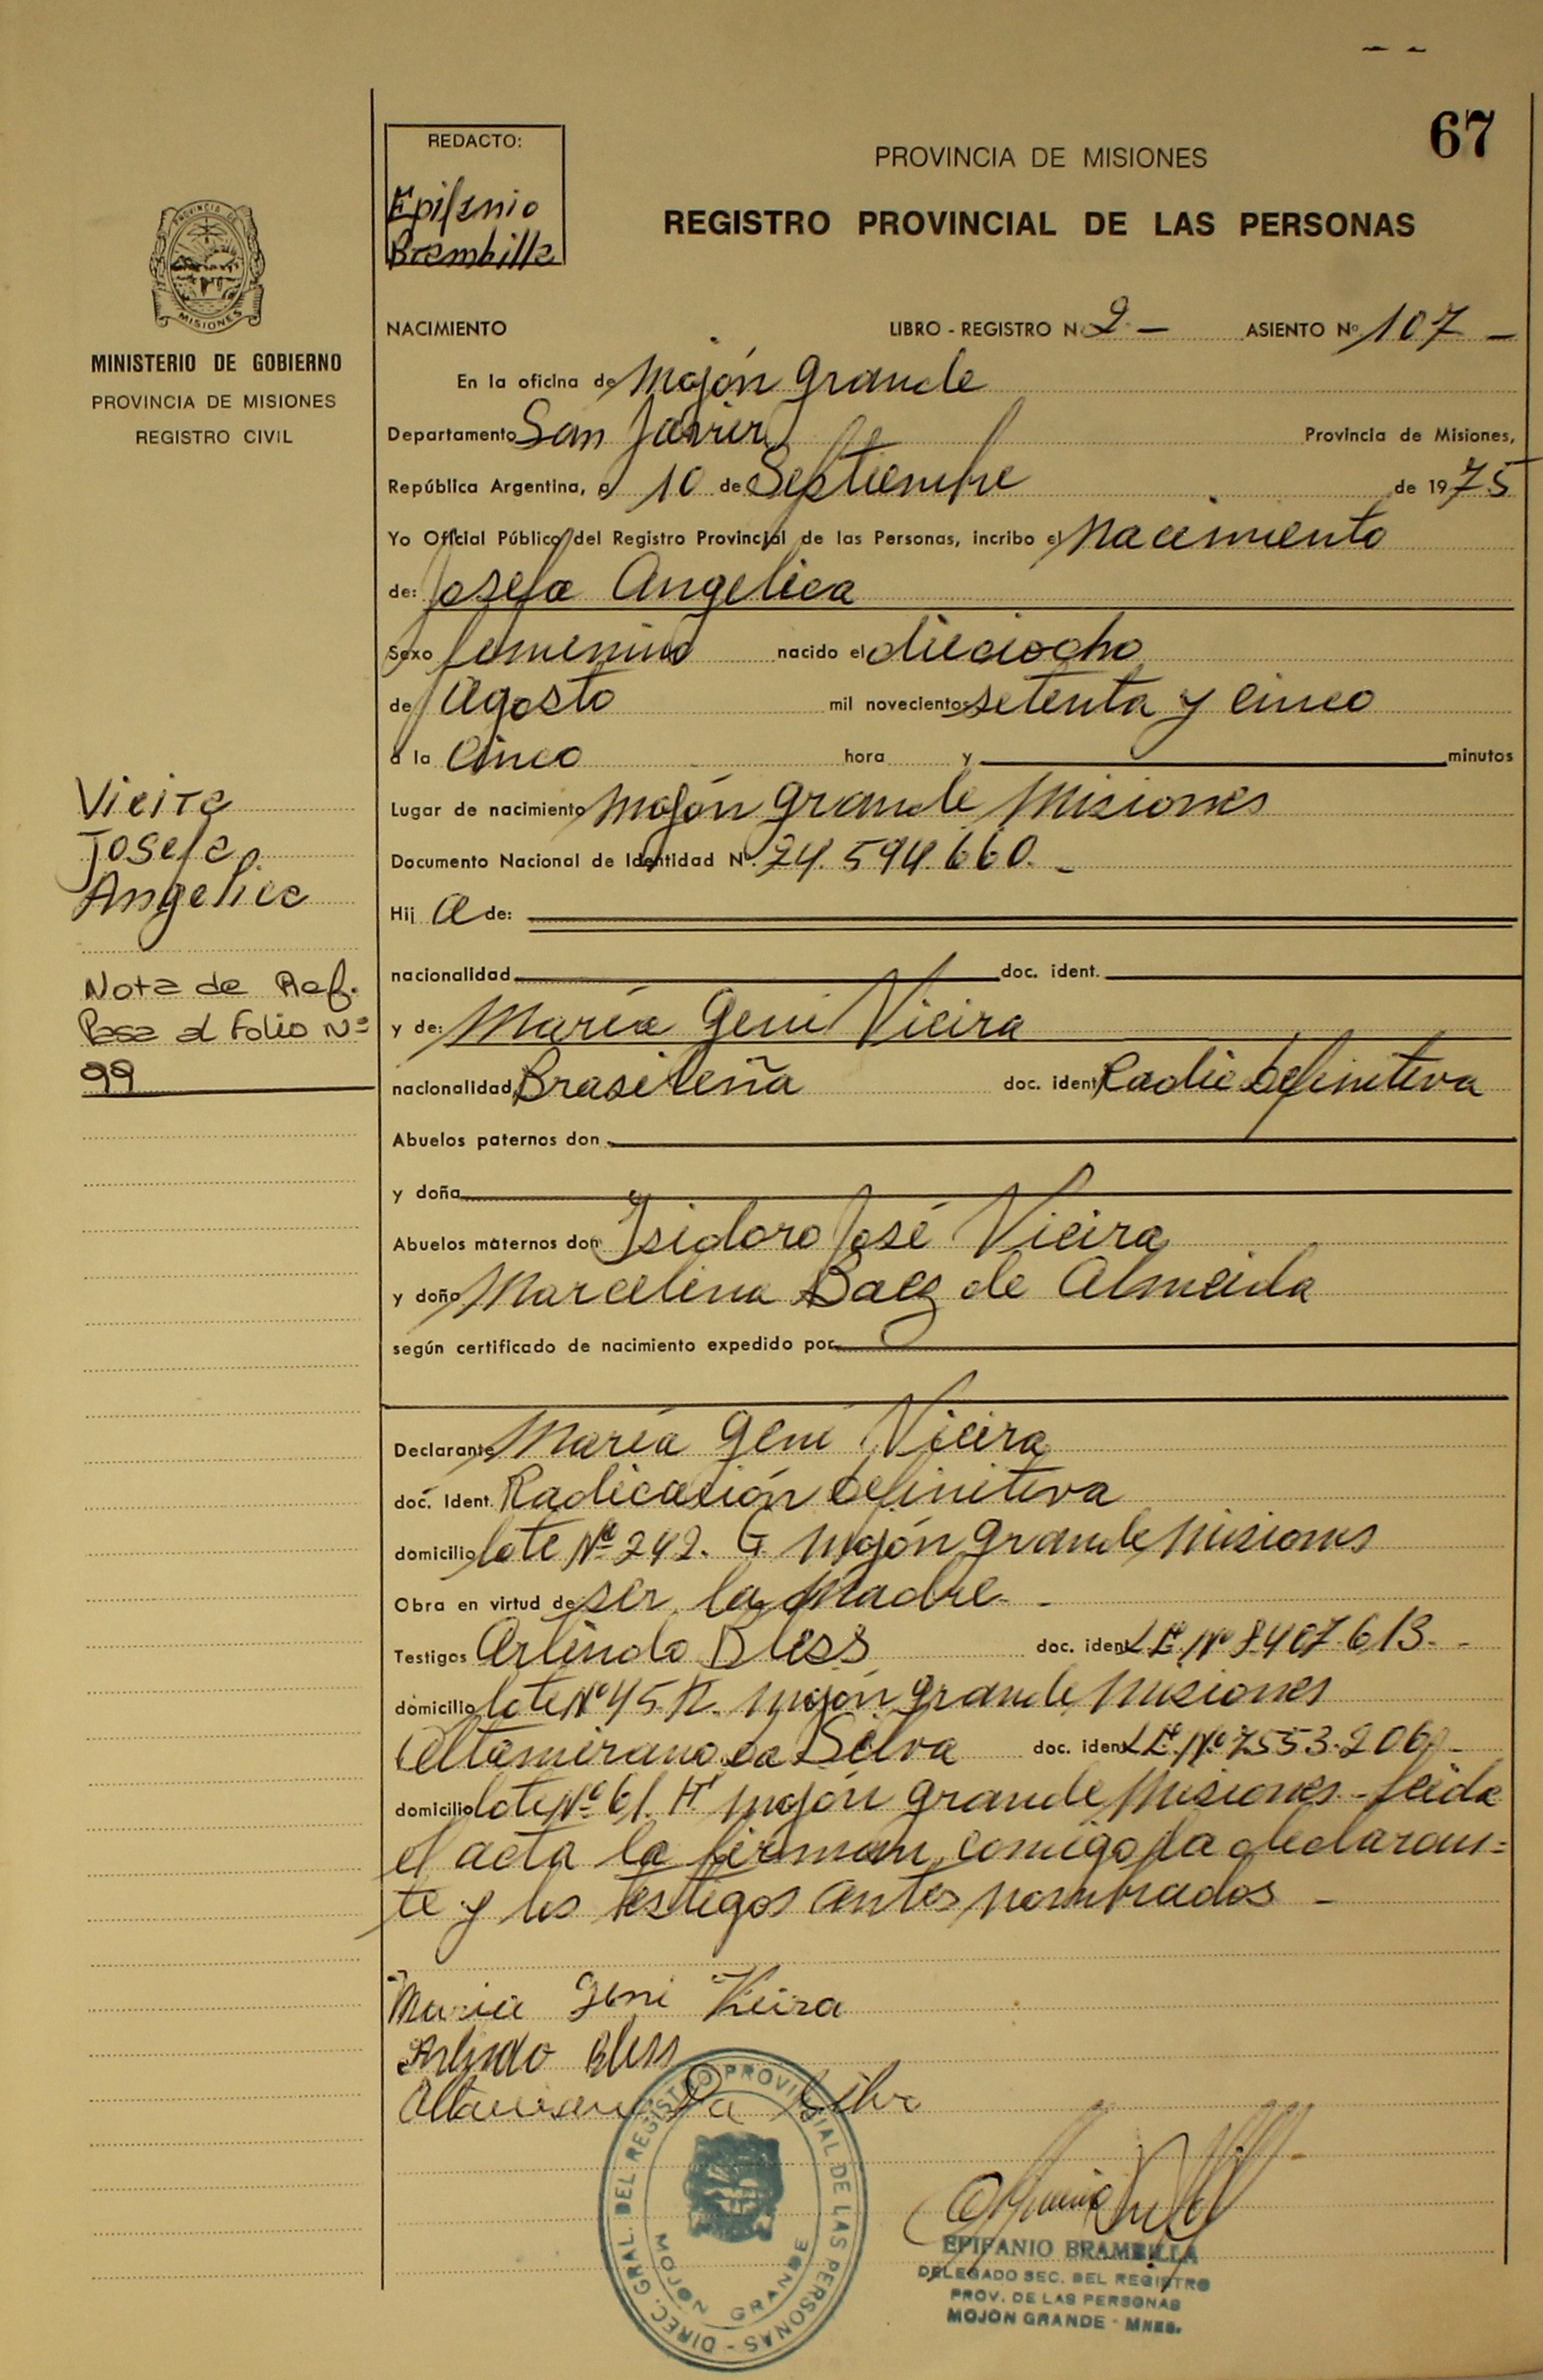 67
REDACTO:
Epifanio
Brambilla
PROVINCIA DE MISIONES
REGISTRO PROVINCIAL DE LAS PERSONAS
PROVINCIA DE
MISIONES
MINISTERIO DE GOBIERNO
PROVINCIA DE MISIONES
REGISTRO CIVIL
NACIMIENTO LIBRO - REGISTRO N. 2 - ASIENTO Nº 107 -
En la oficina de Mojón grande
Departamento San Javier Provincia de Misiones,
República Argentina, a 10 de Septiembre de 1975
Yo Oficial Público del Registro Provincial de las Personas, incribo el nacimiento
de: Josefa Angelica
Sexo femenino nacido el dieciocho
de Agosto mil novecientos setenta y cinco
a la cinco hora y minutos
Lugar de nacimiento Mojón grande Misiones
Documento Nacional de Identidad Nº. 24.594.660.-
Hij a de:
nacionalidad doc. ident.
y de: María Geni Vieira
nacionalidad Brasileña doc. ident Radic Definitiva
Abuelos paternos don
y doña
Abuelos maternos don Isidoro José Vieira
y doña Marcelina Baez de Almeida
según certificado de nacimiento expedido por
Declarante María Geni Vieira
doc. Ident. Radicación Definitiva
domicilio lote Nº 242. G Mojón grande Misiones
Obra en virtud de ser la Madre -
Testigos Arlindo Bless doc. ident L.E. Nº 8.407.613.-
domicilio lote Nº 45 Mojón grande Misiones
Altamirano da Silva doc. ident L.E. Nº 7553.206 -
domicilio lote Nº 61. Mojón grande Misiones - leida
el acta la firman comigo la declaran=
te y los testigos antes nombrados -
Maria Geni Vieira
Arlindo Bless
Altamirano Da Silva
Vieira
Josefa
Angelica
Nota de Ref.
Pasa al Folio Nº
99
DIREC. GRAL. DEL REGISTRO PROVINCIAL DE LAS PERSONAS -
MOJON GRANDE
EPIFANIO BRAMBILLA
DELEGADO SEC. DEL REGISTRO
PROV. DE LAS PERSONAS
MOJON GRANDE - MNES.